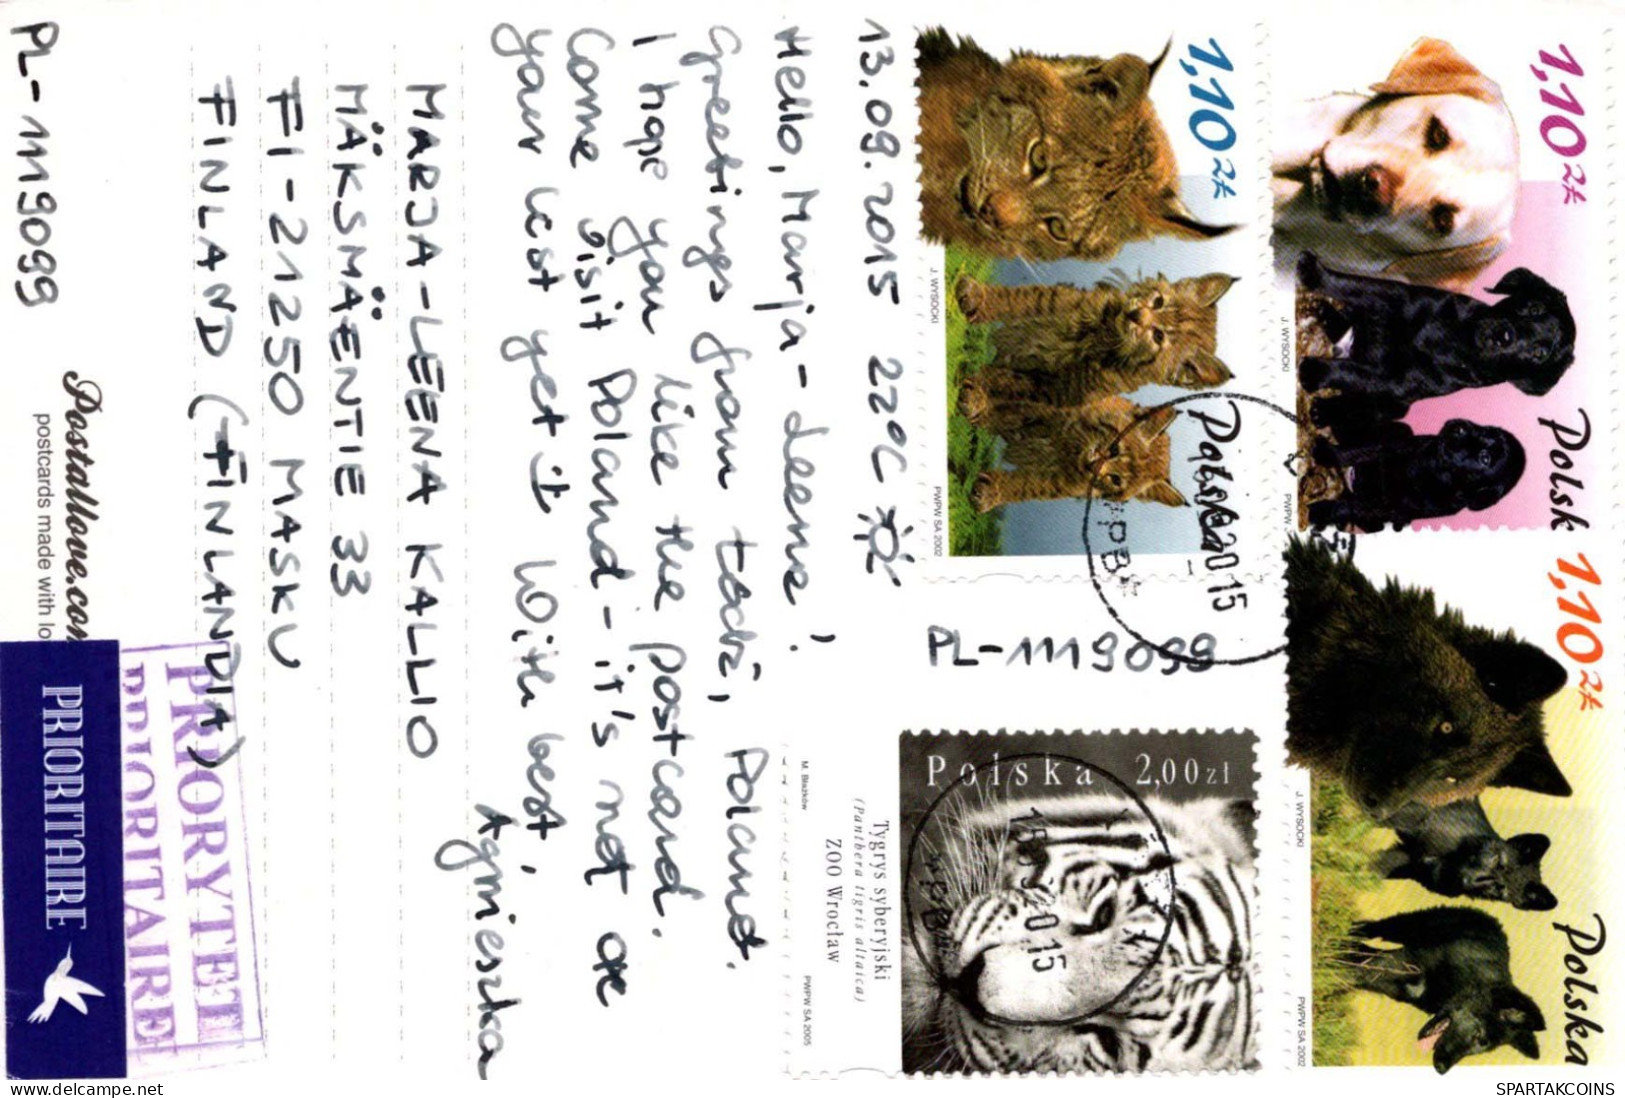 13.09.2015 22°C
Hello, Marja-Leena!
Greetings from Łódź, Poland.
I hope you like the postcard.
Come visit Poland - it's not as
you
yet With best,
Agnieszka
MARJA-LEENA KALLIO
MÄKSMÄENTIE 33
FI-21250 MASKU
FINLAND (FINLANDIA)
PL-1119099
Postallove.com
postcards made with lo
PRIORITAIRE
PRIORYTET
PRIORITAIRE
PL-1119099
1,10 zł
Polska
J. WYSOCKI
PWPW SA 2002
1,10 zł
Polsk
J. WYSOCKI
PWPW
1,10 zł
Polska
J. WYSOCKI
PWPW SA 2002
Polska 2,00 zł
Tygrys syberyjski
(Panthera tigris altaica)
ZOO Wrocław
M. Błażków
PWPW SA 2005
2015
2015
www.delcampe.net
SPARTAKCOINS